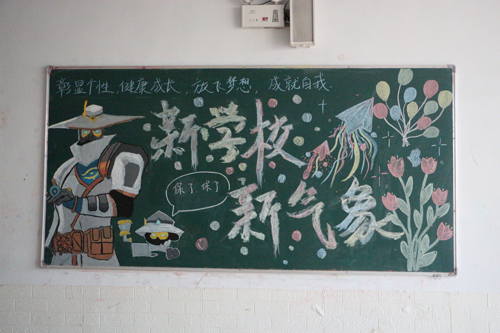 彰显个性,健康成长,放飞梦想,成就自我
新学校
新气象
保了,保了